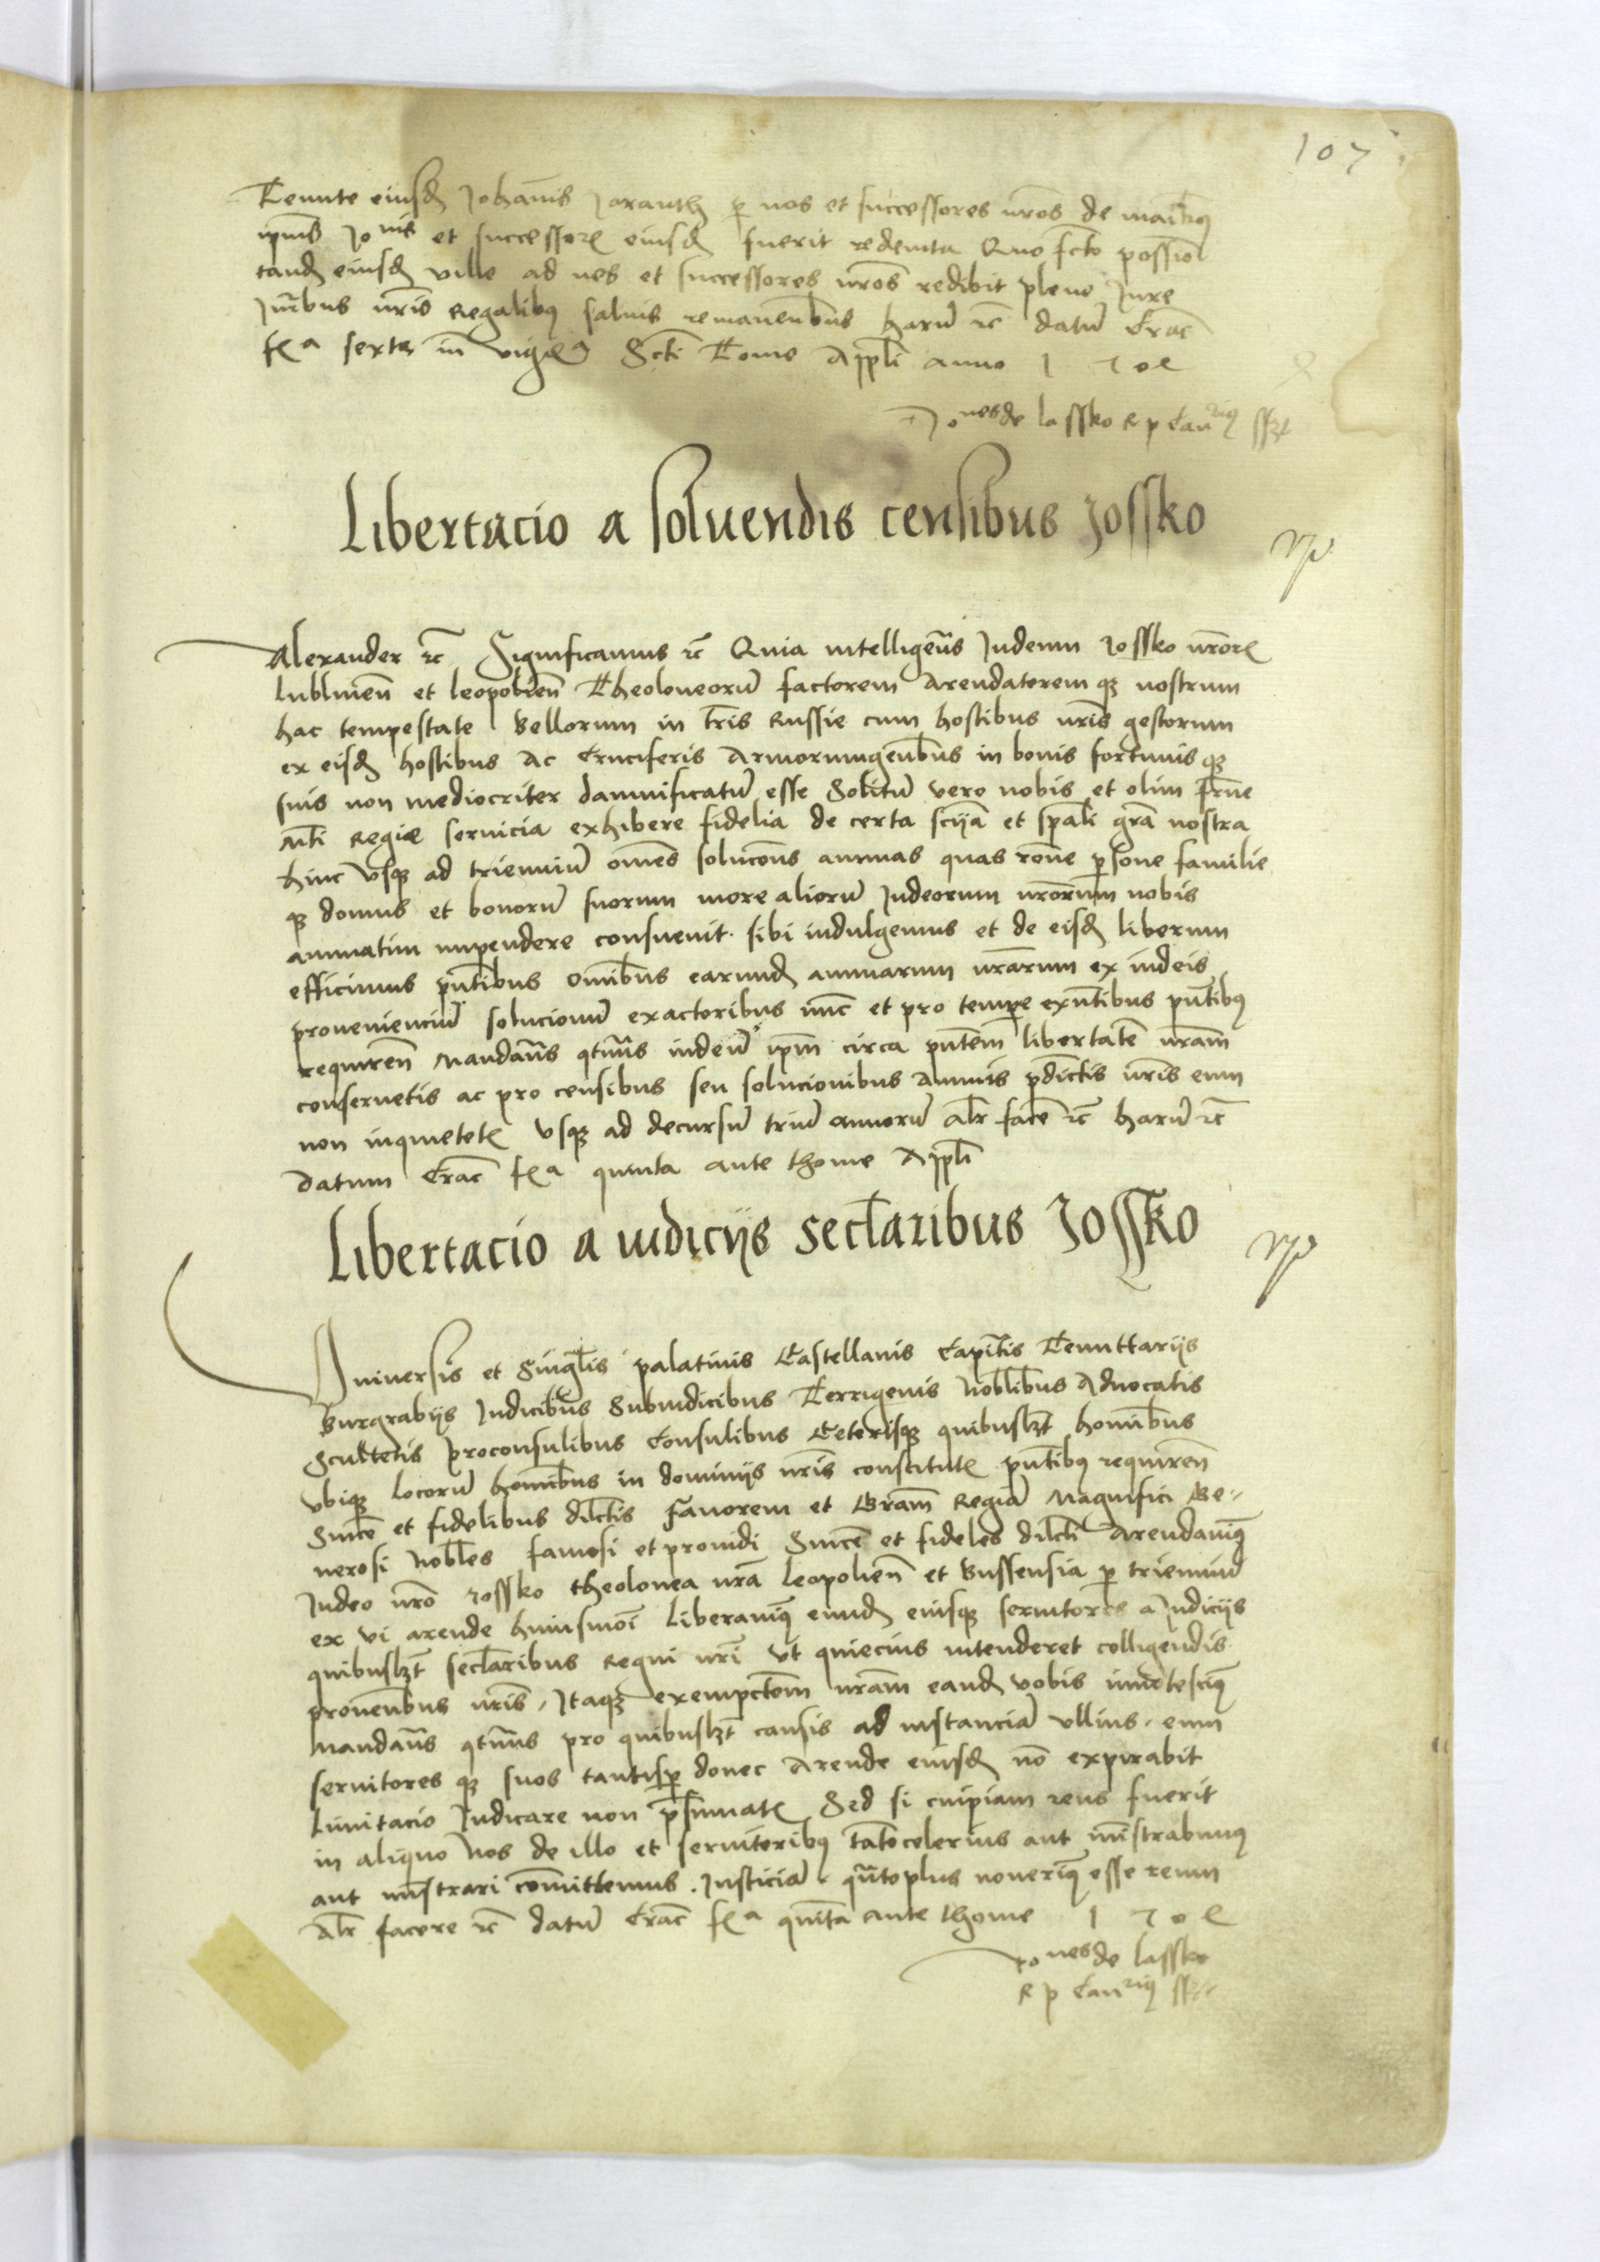 107
Tenute eiusd Johanis Jaranth p nos et successores nros de maibus
ipius Jo nis et successor eiusd fuerit redemta Quo fcto possio
tand eiusd ville ad nos et successores nros redibit pleno Jure
Juribus nris Regalibus saluis remanenbus haru rc datu Crac
f a sexta in vigilia Scti Tome Appli anno 1 5 0 2
Jo nes de lassko R p Can rius sszt
Libertacio a soluendis censibus Jossko
Alexander rc Significamus rc Quia intelligens Judeum Jossko nror
lublinen et leopolien Theoloneoru factorem Arendatorem qz nostrum
hac tempestate Bellorum in tris Russie cum hostibus nris gestorum
ex eisd hostibus Ac Cruciferis Armorumgentibus in bonis fortunis qz
suis non mediocriter damnificatu esse Solitu vero nobis et olim frne
Mti Regie seruicia exhibere fidelia de certa scija et spali gra nostra
hinc vsqz ad trienniu omes solucones annuas quas rone psone familie
qz domus et bonoru suorum more alioru Judeorum nrorum nobis
annuatim impendere consueuit. sibi indulgemus et de eisd liberum
efficimus pntibus Omnibus earund annuarum nrarum ex iudeis
prouenienciu solucionu exactoribus nuc et pro tempe exntibus pntibus
requiren Mandams qtnus iudeu ipm circa pntem libertate nram
conseruetis ac pro censibus seu solucionibus Annuis pdictis nris eum
non inquietet vsqz ad decursu triu annoru alr face rc haru rc
Datum Crac f a quinta ante thome Appli
Libertacio a iudicijs seclaribus Jossko
Vniuersis et Singlis palatinis Castellanis Capitis Tenuttarijs
Burgrabijs Judicibus Subiudicibus Terrigenis Noblibus Aduocatis
Scultetis proconsulibus Consulibus Ceterisqz quibuslzt hominbus
vbiqz locoru hominbus in dominijs nris constitut pntibus requiren
Since et fidelibus dilctis Fauorem et Gram Regia Magnifici Ge-
nerosi Nobles famosi et prouidi Since et fideles dilcti Arendauimus
Judeo nro Jossko theolonea nra leopolien et Bussensia p trienniu
ex vi arende huiusmoi liberauimus eund eiusqz seruitores a Judicijs
quibuslzt seclaribus Regni nri vt quiecius intenderet colligendis
prouenbus nris. Itaqz exempctom nram eand vobis innotescimus
Mandams qtnus pro quibuslzt causis ad instancia vllius. eum
seruitores qz suos tantisp donec Arende eiusd no expirabit
limitacio Judicare non psumat Sed si cuipiam reus fuerit
in aliquo Nos de illo et seruitoribus tato celerius aut mistrabimus
aut mistrari comittemus. Justicia. quto plus nouerimus esse reum
Alr facere rc datu Crac f a quinta ante thome 1 5 0 2
Jo nes de lassko
R p Can rius sszt